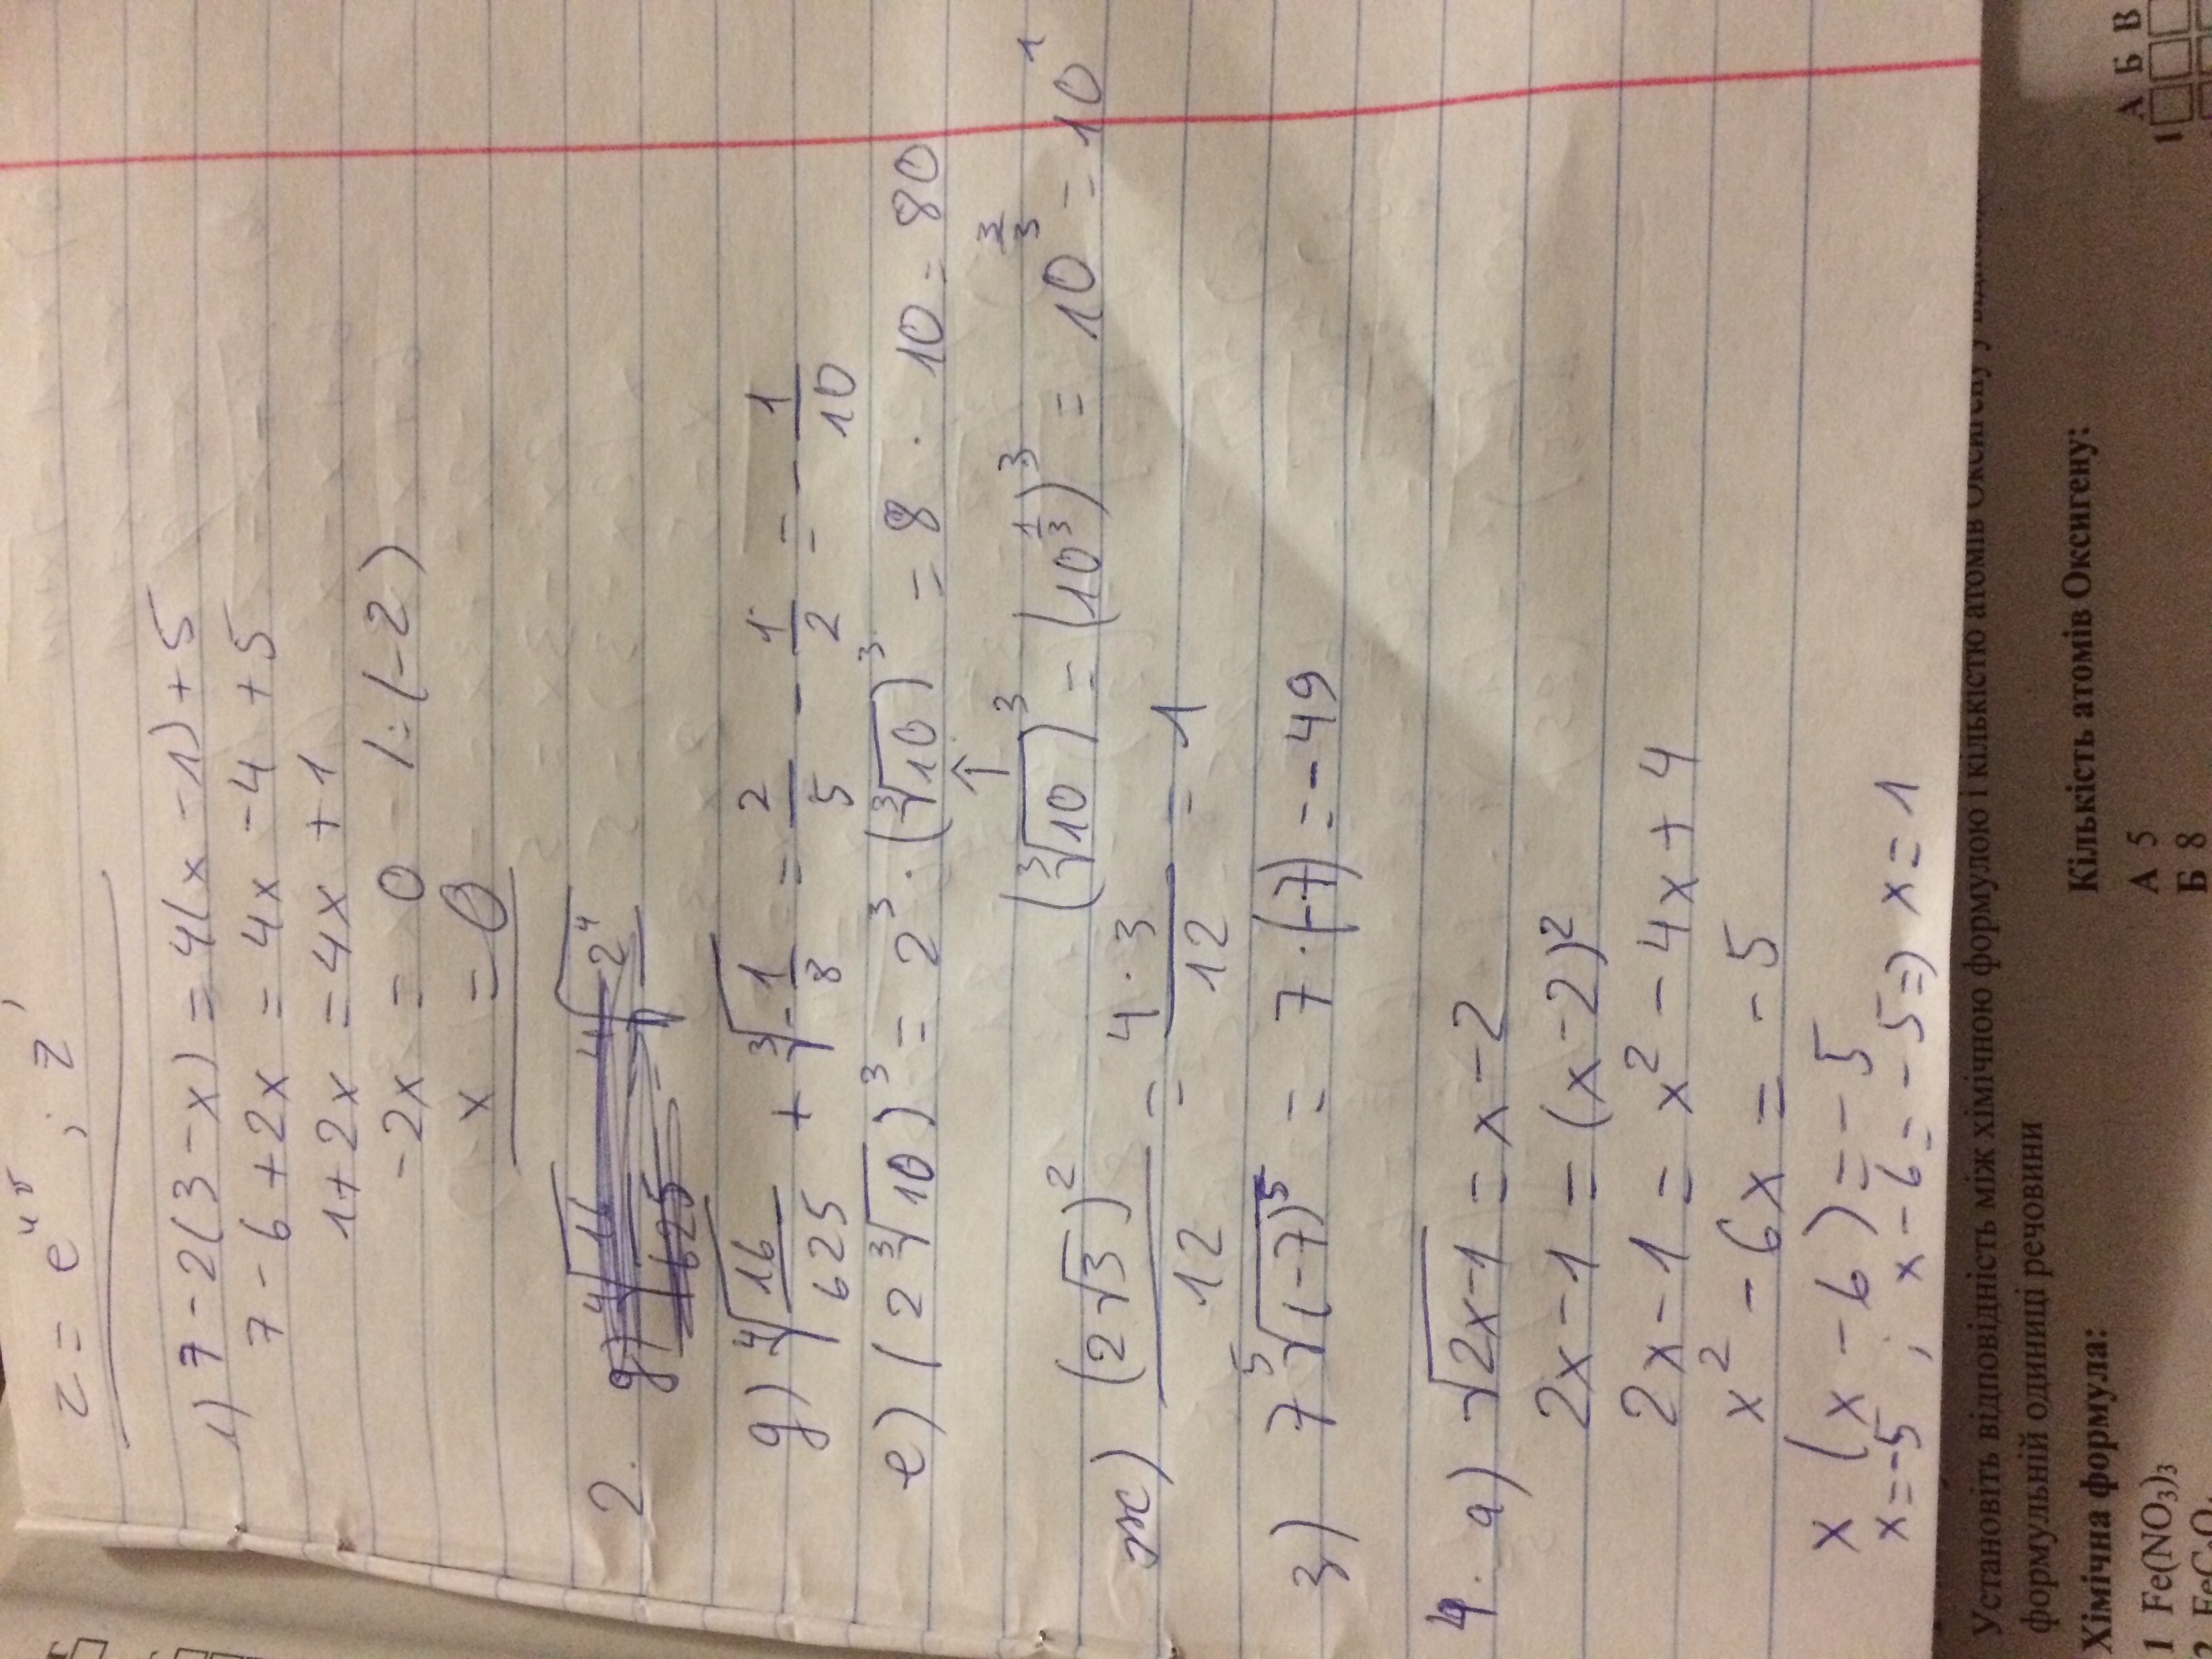 z = e^{4x}; z'
1) 7 - 2(3 - x) = 4(x - 1) + 5
7 - 6 + 2x = 4x - 4 + 5
1 + 2x = 4x + 1
-2x = 0 | : (-2)
x = 0
2.
g) ∜(16/625) + ∛(-1/8) = 2/5 - 1/2 = - 1/10
е) (2∛10)³ = 2³ · (∛10)³ = 8 · 10 = 80
↑
(∛10)³ = (10^{1/3})³ = 10^{3/3} = 10¹
ж) (2√3)²/12 = 4 · 3/12 = 1
з) 7 ⁵√(-7)⁵ = 7 · (-7) = -49
4. а) √(2x-1) = x - 2
2x - 1 = (x - 2)²
2x - 1 = x² - 4x + 4
x² - 6x = -5
x (x - 6) = -5
x = -5 ; x - 6 = -5 => x = 1
Установіть відповідність між хімічною формулою і кількістю атомів Оксигену у
формульній одиниці речовини
Хімічна формула: Кількість атомів Оксигену:
1 Fe(NO₃)₃ А 5
2 Б 8
А Б В
1